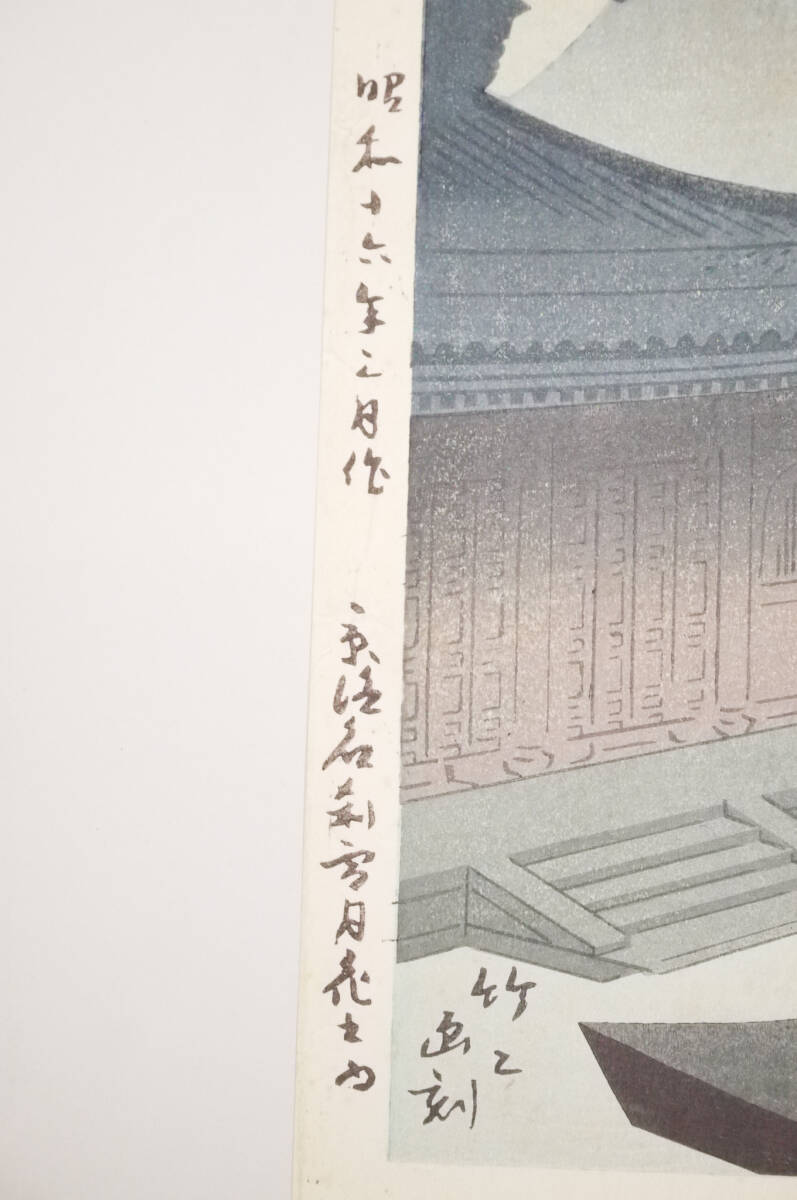 昭和十六年三月作 京洛名刹雪月花之内
竹二
画刻